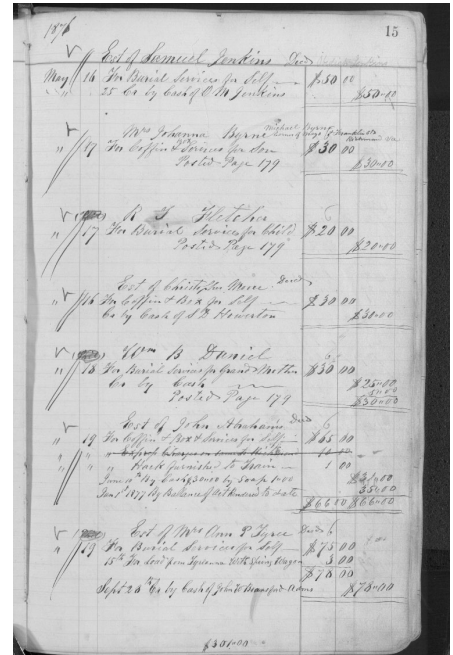 1876
15
Est of Samuel Jenkins Decd
May 16 For Burial Services for Self $50 00
" 25 Cr by Cash of O M Jenkins $50.00
Mrs Johanna Byrne Michael Byrne
" 17 For Coffin & Services for Son $30 00
Posted Page 179 $30.00
R J Fletcher
" 17 For Burial Services for Child $20 00
Posted Page 179 $20.00
Est of Christopher Moore Decd
" 16 For Coffin & Box for Self $30 00
Cr by Cash of S B Howerton $30.00
Wm B Daniel
" 18 For Burial Services for Grand Mother $30 00
Cr by Cash $25.00
Posted Page 179 5.00
$30.00
Est of John Abrahams Decd 6
" 19 For Coffin & Box & Services for Self $65 00
" " Hack furnished to Train 1 00
June 10th By Cash 30.00 by Soap 1.00 $31.00
Jan 1st 1877 By Balance of Act 35.00
$66 00 $66.00
Est of Mrs Ann P Tyree Decd 6
" 19 For Burial Services for Self $75 00
15th For Load from With Spring Wagon 3 00
$78 00
Sept 20th Cr by Cash of John $78.00
$301.00